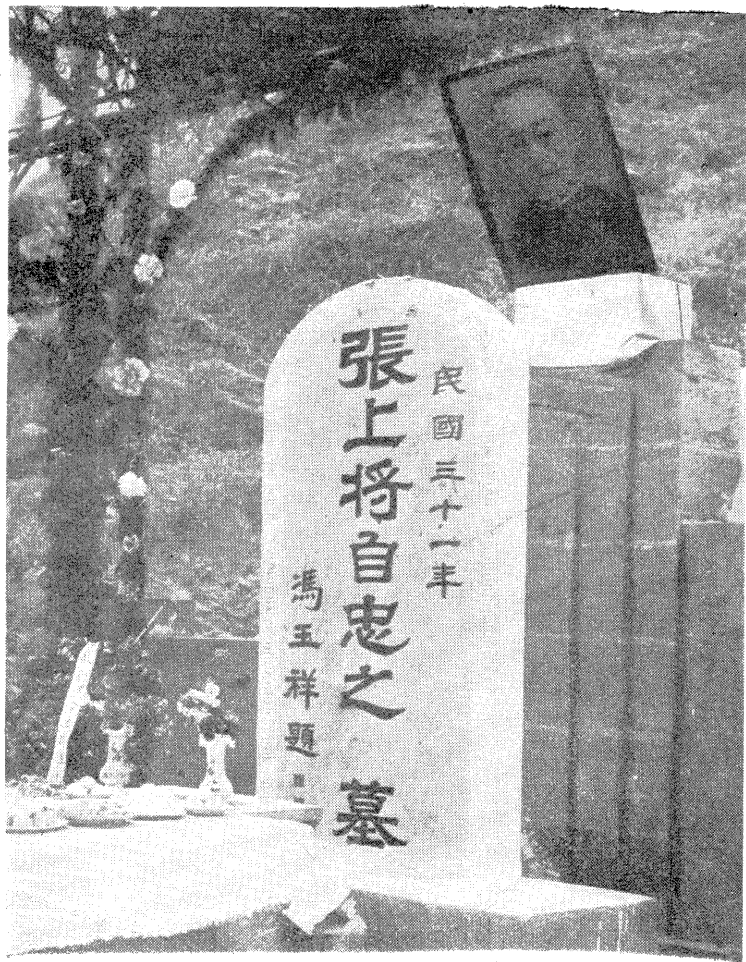 民國三十一年
張上将自忠之墓
馮玉祥題